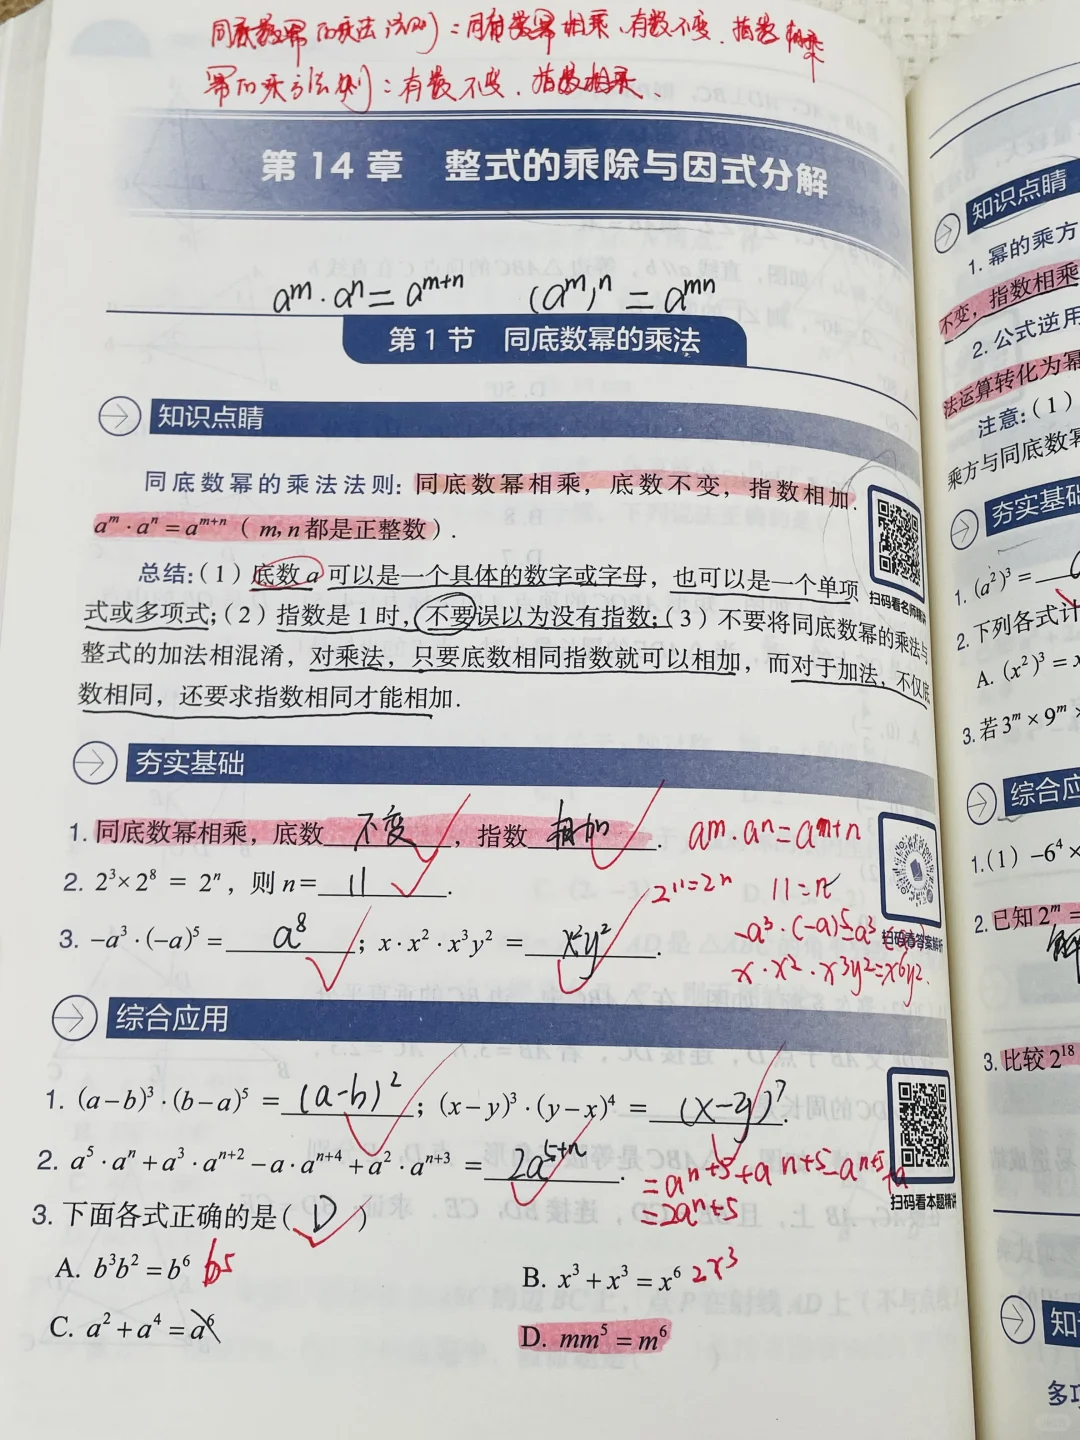 同底数幂的乘法法则：同底数幂相乘，有数不变，指数相乘
幂的乘方法则：有数不变，指数相乘．
第14章 整式的乘除与因式分解
aᵐ·aⁿ=aᵐ⁺ⁿ (aᵐ)ⁿ=aᵐⁿ
第1节 同底数幂的乘法
知识点睛
同底数幂的乘法法则：同底数幂相乘，底数不变，指数相加．
aᵐ·aⁿ=aᵐ⁺ⁿ（m,n都是正整数）．
总结：（1）底数a可以是一个具体的数字或字母，也可以是一个单项
扫码看名师精讲
式或多项式；（2）指数是1时，不要误以为没有指数；（3）不要将同底数幂的乘法与
整式的加法相混淆，对乘法，只要底数相同指数就可以相加，而对于加法，不仅底
数相同，还要求指数相同才能相加．
夯实基础
1. 同底数幂相乘，底数 不变 ，指数 相加 ． aᵐ·aⁿ=aᵐ⁺ⁿ
2. 2³×2⁸ = 2ⁿ，则n= 11 ． 2¹¹=2ⁿ 11=n
3. -a³·(-a)⁵ = a⁸ ；x·x²·x³y² = ． -a³·(-a)⁵
扫码看答案解析
x·x²·x³y²=x⁶y².
综合应用
1. (a-b)³·(b-a)⁵ = (a-b)² ；(x-y)³·(y-x)⁴ = (x-y)⁷ ．
2. a⁵·aⁿ+a³·aⁿ⁺²-a·aⁿ⁺⁴+a²·aⁿ⁺³ = 2a⁵⁺ⁿ ． =aⁿ⁺⁵+aⁿ⁺⁵-aⁿ⁺⁵+a
=2aⁿ⁺⁵
扫码看本题精讲
3. 下面各式正确的是（ D ）
A. b³b²=b⁶ b⁵
B. x³+x³=x⁶ 2x³
C. a²+a⁴=a⁶
D. mm⁵=m⁶
知识点睛
1. 幂的乘方
不变，指数相乘
2. 公式逆用
法运算转化为幂
注意：（1）
乘方与同底数幂
夯实基础
1. (a²)³=
2. 下列各式计
A. (x²)³=x
3. 若3ᵐ×9ᵐ×
综合应
1.（1）-6⁴×
2. 已知2ᵐ=
解
3. 比较2¹⁸
知
多项